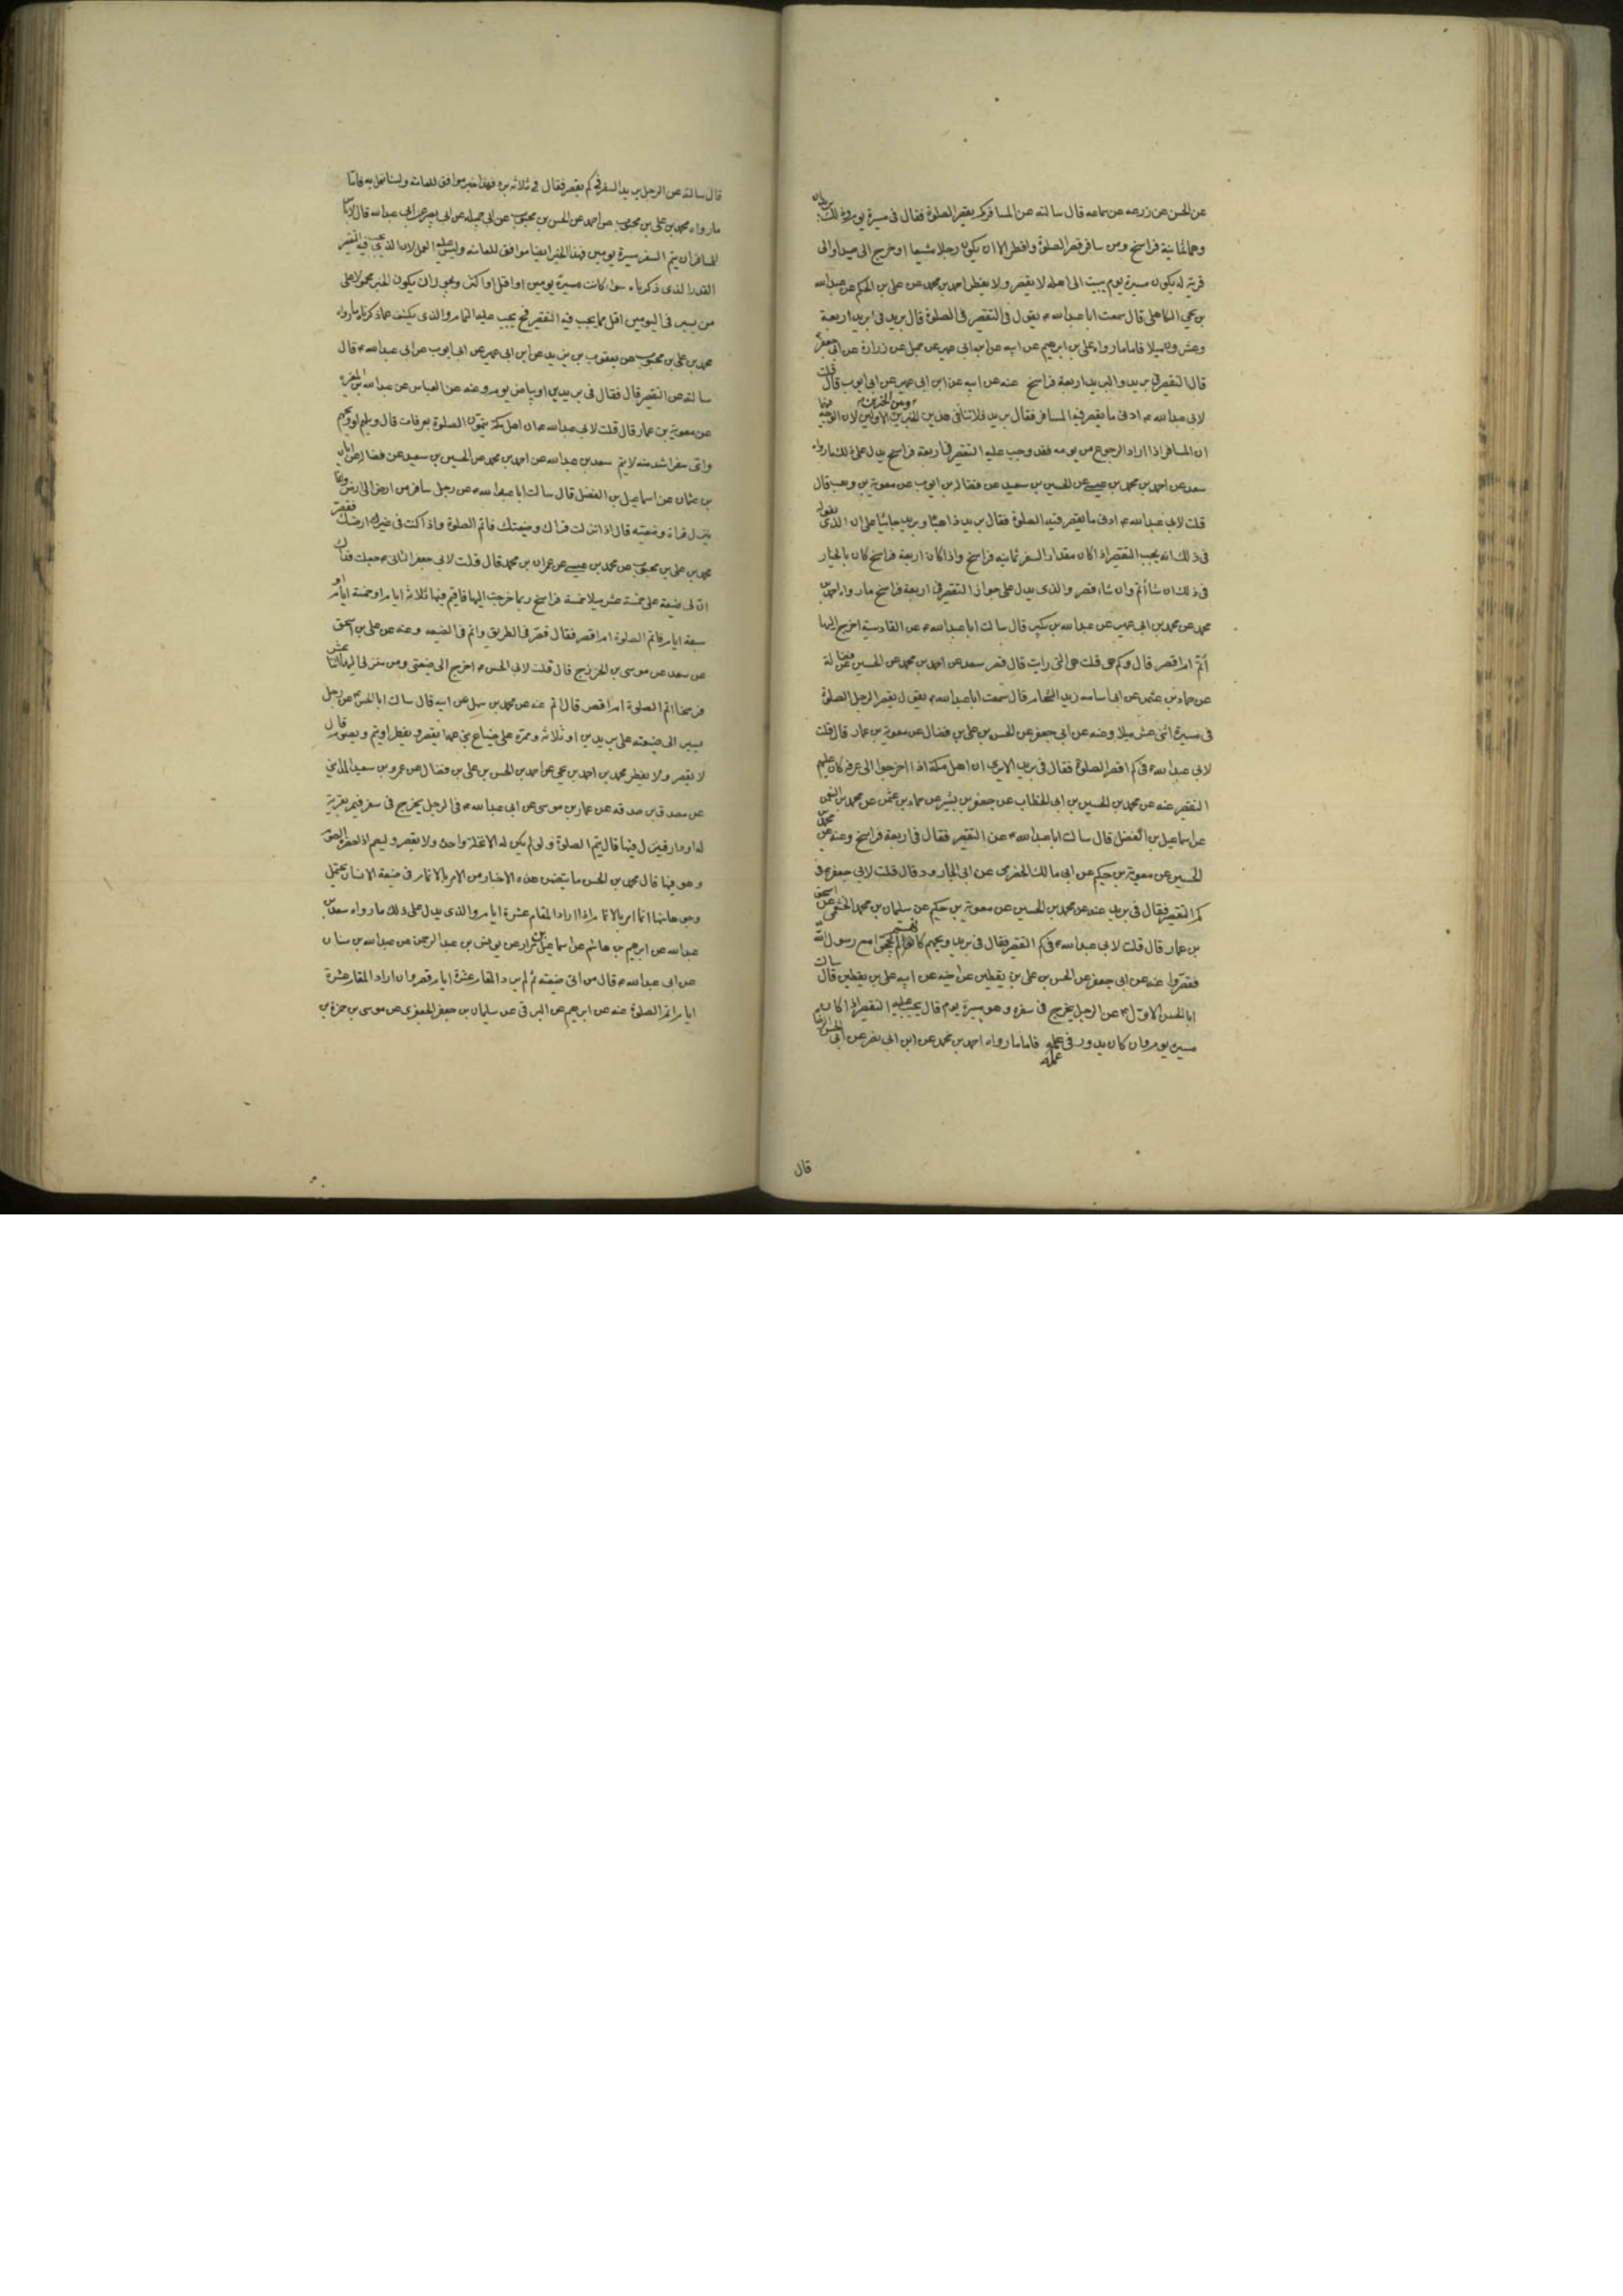 عن الحسن عن زرعه عن سماعه قال سالته عن المسافر كم يقصر الصلوة فقال فى مسيرة يوم وذلك بريدان
وهما ثمانية فراسخ ومن سافر قصر الصلوة وافطر الا ان يكون رجلا مشيعا او خرج الى صيد او الى
قرية له يكون مسيرة يوم يبيت الى اهله لا يقصر ولا يفطر احمد بن محمد عن على بن الحكم عن عبدالله
بن يحيى الكاهلى قال سمعت ابا عبدالله ع يقول فى التقصير فى الصلوة قال بريد فى بريد اربعة
وعشرون ميلا فاما ما رواه على بن ابرهيم عن ابيه عن ابن ابى عمير عن جميل عن زرارة عن ابى جعفر ع
قال التقصير فى بريد والبريد اربعة فراسخ عنه عن ابيه عن ابن ابى عمير عن ابى ايوب قال قلت
لابى عبدالله ع ادنى ما يقصر فيه المسافر فقال بريد فلا تنافى بين هذين الخبرين وبين الخبرين الاولين لان الوجه فيهما
ان المسافر اذا اراد الرجوع من يومه فقد وجب عليه التقصير فى اربعة فراسخ يدل على ذلك ما رواه
سعد عن احمد بن محمد بن عيسى عن الحسين بن سعيد عن فضالة بن ايوب عن معوية بن وهب قال
قلت لابى عبدالله ع ادنى ما يقصر فيه الصلوة فقال بريد ذاهبا وبريد جائيا على ان الذى نقول
فى ذلك انه يجب التقصير اذا كان مقدار السفر ثمانيه فراسخ واذا كان اربعة فراسخ كان بالخيار
فى ذلك ان شاء اتم وان شاء قصر والذى يدل على جواز التقصير فى اربعة فراسخ ما رواه احمد بن
محمد عن محمد بن ابى عمير عن عبدالله بن بكير قال سالت ابا عبدالله ع عن القادسية اخرج اليها
أتم ام اقصر قال وكم هى قلت هى التى رايت قال قصر سعد عن احمد بن محمد عن الحسين عن فضالة
عن حماد بن عثمن عن ابى اسامه زيد الشحام قال سمعت ابا عبدالله ع يقول يقصر الرجل الصلوة
فى مسيرة اثنى عشر ميلا وعنه عن ابى جعفر عن الحسن بن على بن فضال عن معوية بن عمار قال قلت
لابى عبدالله ع فى كم اقصر الصلوة فقال فى بريد الا ترى ان اهل مكة اذا خرجوا الى عرفة كان عليهم
التقصير عنه عن محمد بن الحسين بن ابى الخطاب عن جعفر بن بشير عن حماد بن عثمن عن محمد بن النعمن
عن اسماعيل بن الفضل قال سالت ابا عبدالله ع عن التقصير فقال فى اربعة فراسخ وعنه عن محمد بن
الحسين عن معوية بن حكيم عن ابى مالك الحضرمى عن ابى الجارود قال قلت لابى جعفر ع فى
كم التقصير فقال فى بريد عنه عن محمد بن الحسين عن معوية بن حكيم عن سليمان بن محمد الخثعمى عن اسحق
بن عمار قال قلت لابى عبدالله ع فى كم التقصير فقال فى بريد ويحهم كانهم لم يحجوا مع رسول الله
فقصروا عنه عن ابى جعفر عن الحسن بن على بن يقطين عن اخيه عن ابيه على بن يقطين قال سالت
ابا الحسن الاول ع عن الرجل يخرج فى سفره وهو مسيرة يوم قال يجب عليه التقصير اذا كان
مسيرة يوم وان كان يدور فى عمله فاما ما رواه احمد بن محمد عن ابن ابى نصر عن ابى الحسن الرضا
عمله
قال
قال سالته عن الرجل يريد السفر فى كم يقصر فقال فى ثلاثة برد فهذا خبر موافق للعامة ولسنا نعمل به فاما
ما رواه محمد بن على بن محبوب عن احمد عن الحسن بن محبوب عن ابى جميله عن ابى بصير عن ابى عبدالله قال لا باس
للمسافر ان يتم السفر مسيرة يومين فهذا الخبر ايضا موافق للعامه وليس عليه العمل لان الذى يجب فيه التقصير
القدر الذى ذكرناه سواء كانت مسيرة يومين او اقل او اكثر ويجوز ان يكون الخبر محمولا على
من يسير فى اليومين اقل مما يجب فيه التقصير فح يجب عليه التمام والذى يكشف عما ذكرناه ما رواه
محمد بن على بن محبوب عن يعقوب بن يزيد عن ابن ابى عمير عن ابى ايوب عن ابى عبدالله ع قال
سالته عن التقصير قال فقال فى بريدين او بياض يوم وعنه عن العباس عن عبدالله بن المغيره
عن معوية بن عمار قال قلت لابى عبدالله ع ان اهل مكة يتمون الصلوة بعرفات قال ويلهم او ويحهم
واى سفر اشد منه لا يتم سعد بن عبدالله عن احمد بن محمد عن الحسين بن سعيد عن فضالة عن ابان
بن عثمان عن اسماعيل بن الفضل قال سالت ابا عبدالله ع عن رجل سافر من ارض الى ارض وانما
ينزل قراه وضيعته قال اذا نزلت قراك وضيعتك فاتم الصلوة واذا كنت فى غير ارضك فقصر
محمد بن على بن محبوب عن محمد بن عيسى عن عمران بن محمد قال قلت لابى جعفر الثانى ع جعلت فداك
ان لى ضيعة على خمسة عشر ميلا خمسة فراسخ ربما خرجت اليها فاقيم فيها ثلاثة ايام او خمسة ايام او
سبعة ايام فاتم الصلوة ام اقصر فقال قصر فى الطريق واتم فى الضيعه وعنه عن على بن اسحق
عن سعد عن موسى بن الخزرج قال قلت لابى الحسن ع اخرج الى ضيعتى ومن منزلى اليها اثنا عشر
فرسخا اتم الصلوة ام اقصر قال اتم عنه عن محمد بن سهل عن ابيه قال سالت ابا الحسن ع عن رجل
يسير الى ضيعته على بريدين او ثلاثه وممره على ضياع بنى عمه ايقصر ويفطر او يتم ويصوم قال
لا يقصر ولا يفطر محمد بن احمد بن يحيى عن احمد بن الحسن بن على بن فضال عن عمرو بن سعيد المداينى
عن مصدق بن صدقه عن عمار بن موسى عن ابى عبدالله ع فى الرجل يخرج فى سفر فيمر بقرية
له او دار فينزل فيها قال يتم الصلوة ولو لم يكن له الا نخلة واحدة ولا يقصر وليصم اذا حضره الصوم
وهو فيها قال محمد بن الحسن ما يتضمن هذه الاخبار من الامر بالاتمام فى ضيعة الانسان يحتمل
وجهين احدهما انما امر بالاتمام اذا اراد المقام عشرة ايام والذى يدل على ذلك ما رواه سعد بن
عبدالله عن ابرهيم بن هاشم عن اسماعيل بن مرار عن يونس بن عبدالرحمن عن عبدالله بن سنان
عن ابى عبدالله ع قال من اتى ضيعته ثم لم يرد المقام عشرة ايام قصر وان اراد المقام عشرة
ايام اتم الصلوة عنه عن ابرهيم عن البرقى عن سليمان بن جعفر الجعفرى عن موسى بن حمزة بن